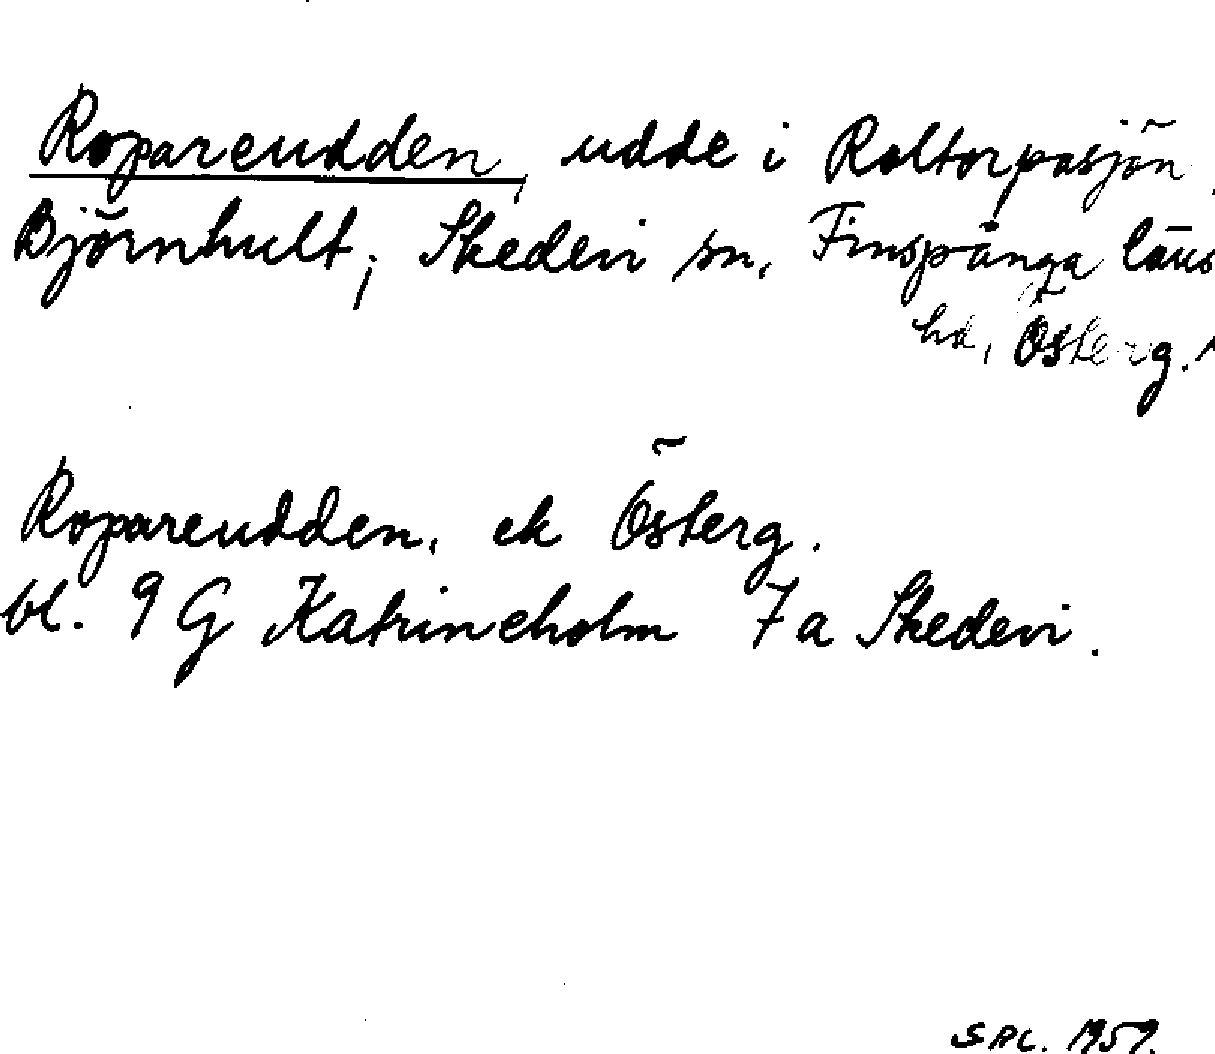 Ropareudden, udde i Roltorpasjön,
Björnhult; Skedevi sn, Finspånga läns
hd, Österg.
Ropareudden. ek Österg.
bl. 9 G Katrineholm 7 a Skedevi.
1959.